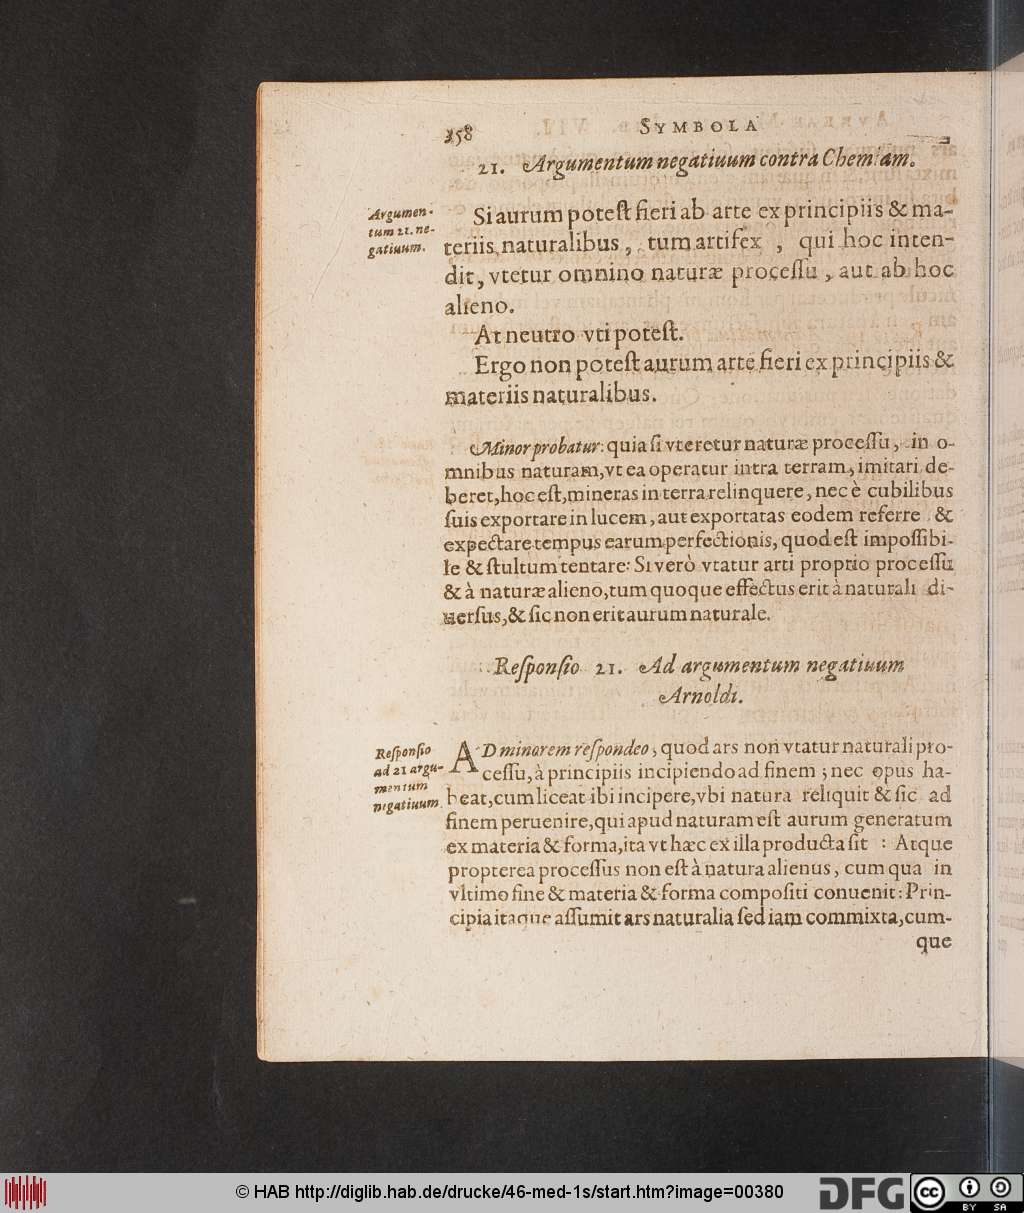 358 SYMBOLA
21. Argumentum negatiuum contra Chemiam.
Argumen-
tum 21. ne-
gatiuum.
Si aurum poteſt fieri ab arte ex principiis & ma-
teriis naturalibus, tum artifex, qui hoc inten-
dit, vtetur omnino naturæ proceſſu, aut ab hoc
alieno.
At neutro vti poteſt.
Ergo non poteſt aurum arte fieri ex principiis &
materiis naturalibus.
Minor probatur: quia ſi vteretur naturæ proceſſu, in o-
mnibus naturam, vt ea operatur intra terram, imitari de-
beret, hoc eſt, mineras in terra relinquere, nec è cubilibus
ſuis exportare in lucem, aut exportatas eodem referre &
expectare tempus earum perfectionis, quod eſt impoſſibi-
le & ſtultum tentare: Si verò vtatur arti proprio proceſſu
& à naturæ alieno, tum quoque effectus erit à naturali di-
uerſus, & ſic non erit aurum naturale.
Reſponſio 21. Ad argumentum negatiuum
Arnoldi.
Reſponſio
ad 21 argu-
mentum
negatiuum.
AD minorem reſpondeo, quod ars non vtatur naturali pro-
ceſſu, à principiis incipiendo ad finem; nec opus ha-
beat, cum liceat ibi incipere, vbi natura reliquit & ſic ad
finem peruenire, qui apud naturam eſt aurum generatum
ex materia & forma, ita vt hæc ex illa producta ſit : Atque
propterea proceſſus non eſt à natura alienus, cum qua in
vltimo fine & materia & forma compoſiti conuenit: Prin-
cipia itaque aſſumit ars naturalia ſed iam commixta, cum-
que
© HAB http://diglib.hab.de/drucke/46-med-1s/start.htm?image=00380
DFG
cc BY SA